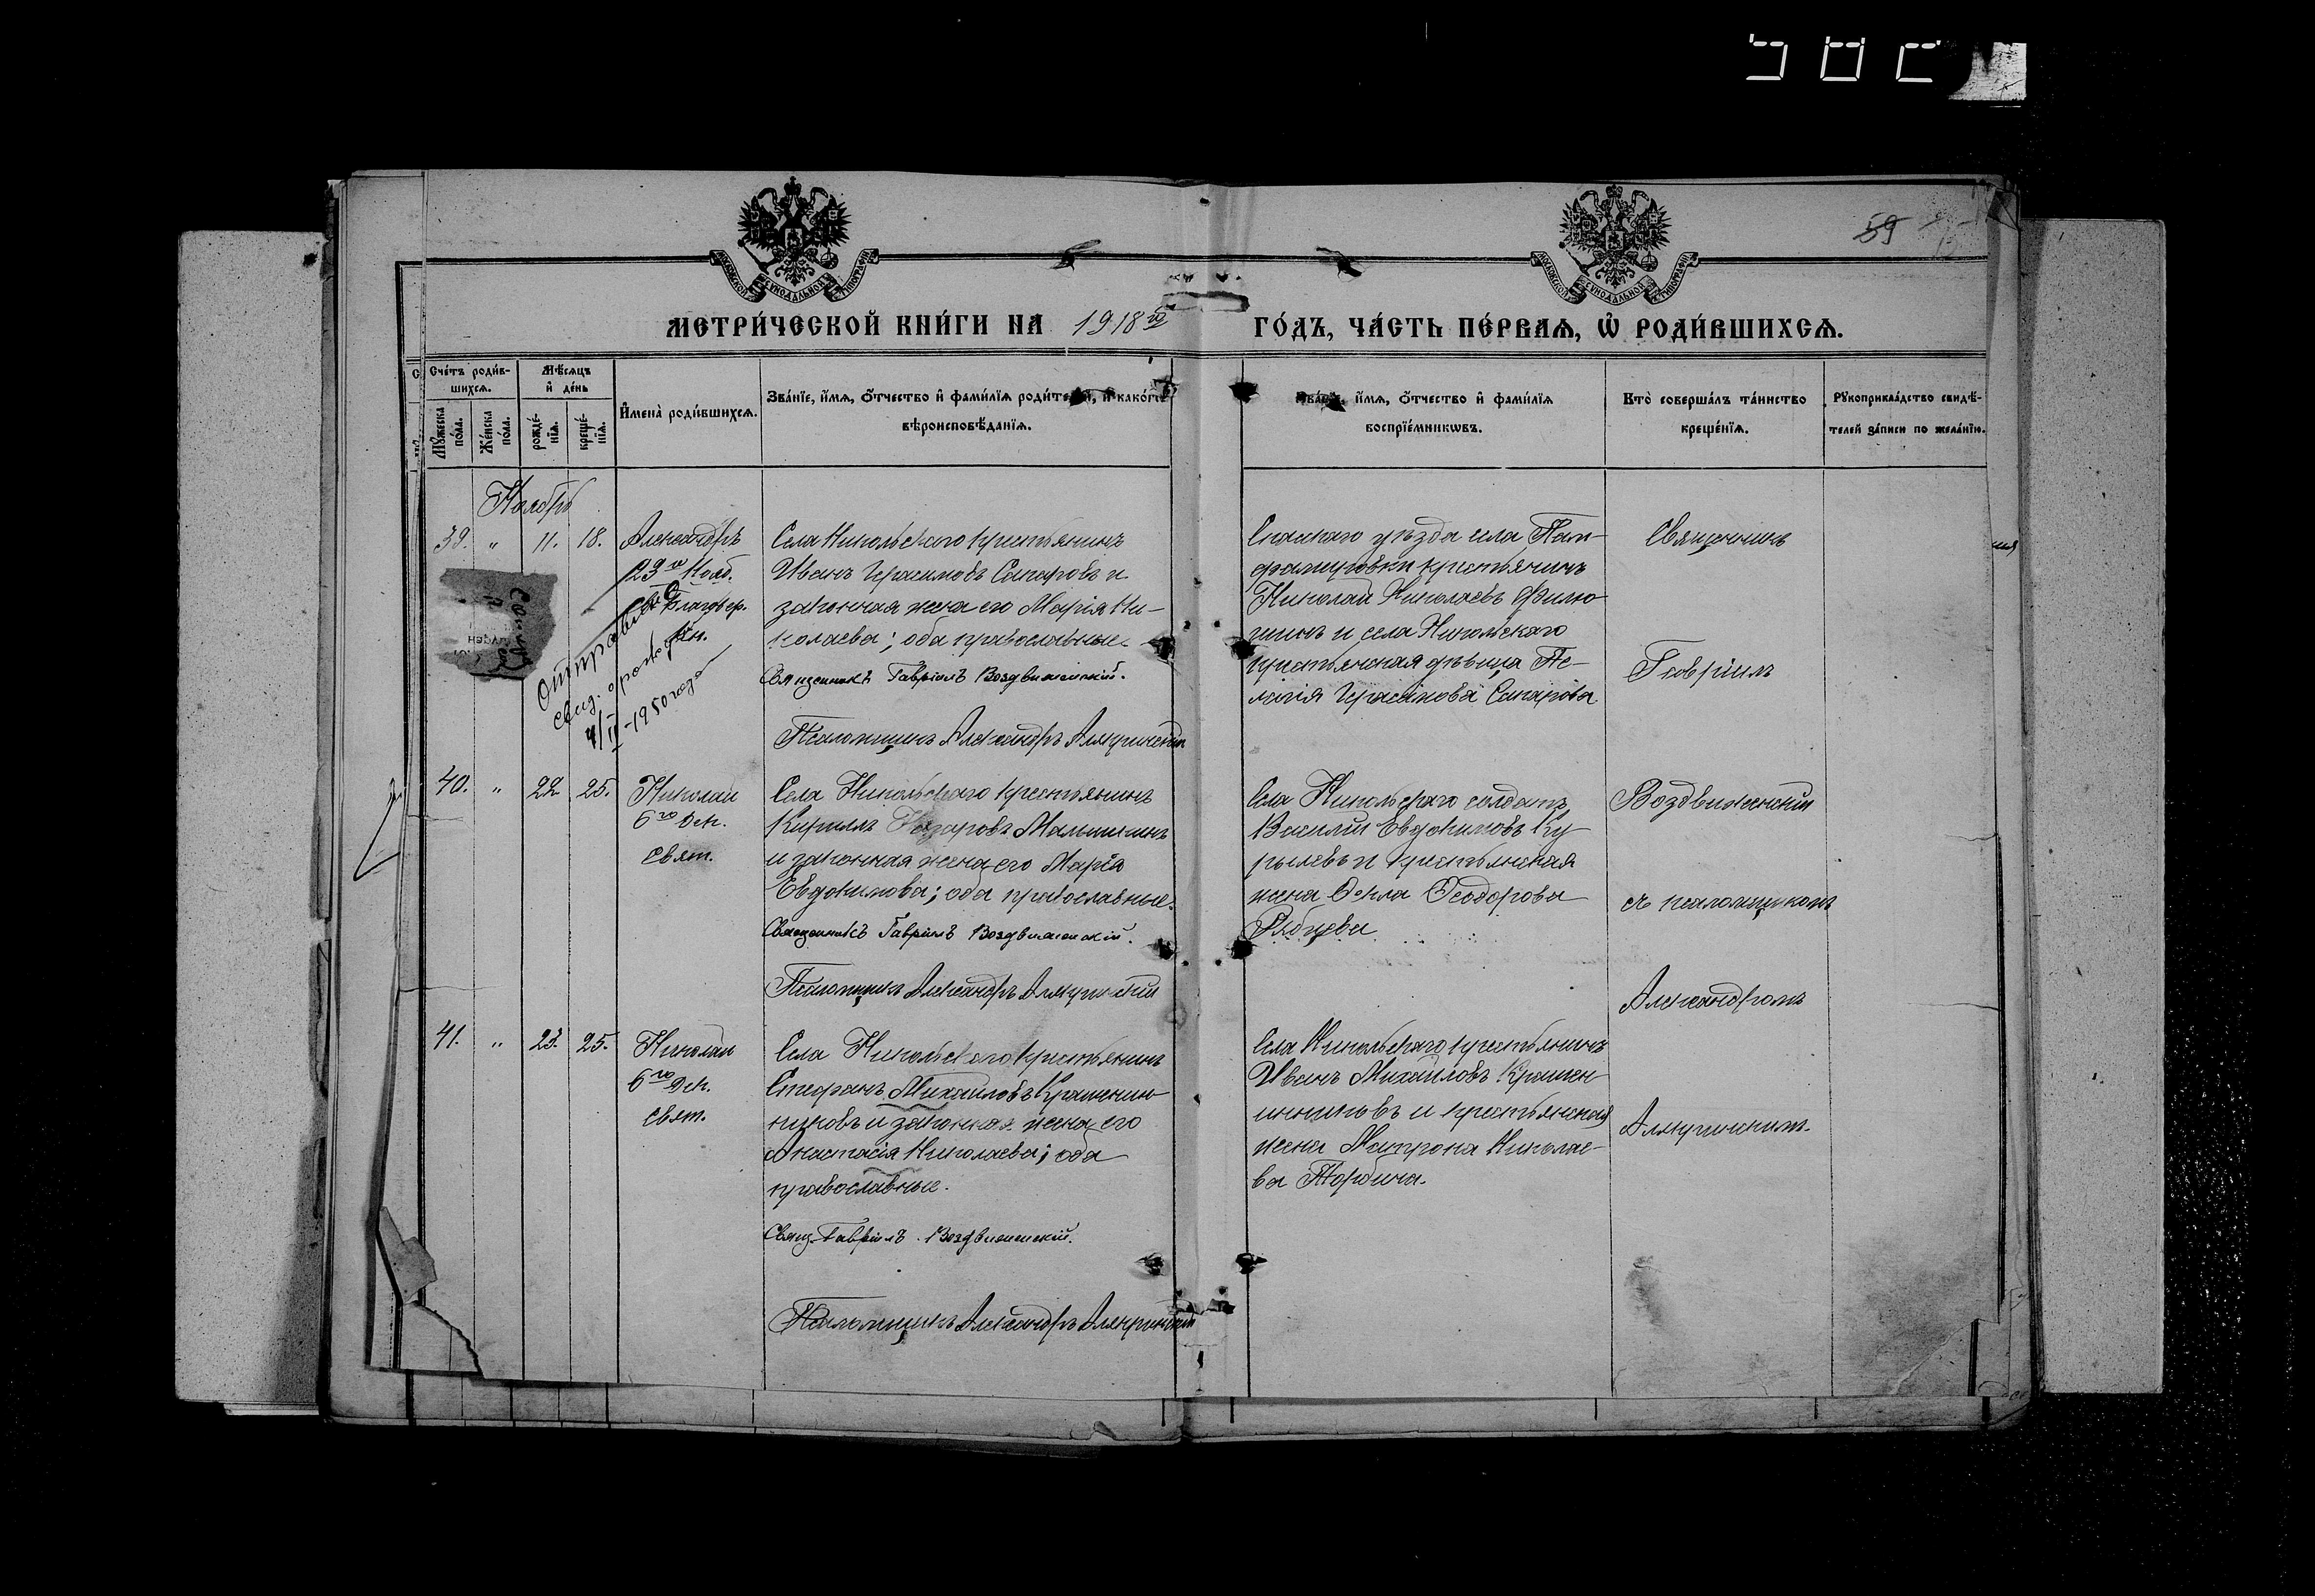 59
МЕТРИ́ЧЕСКОЙ КНИ́ГИ НА 1918 го ГО́ДЪ, ЧА́СТЬ ПЕ́РВАѦ, Ѡ҆ РОДИ́ВШИХСѦ.
Сче́тъ роди́в-
шихсѧ.
Мѣ́сѧцъ
и҆ де́нь
Мꙋ́жеска
по́ла.
Же́нска
по́ла.
рожде́-
нїѧ.
креще́-
нїѧ.
И҆мена̀ роди́вшихсѧ.
Зва́нїе, и҆́мѧ, о҆́тчество и҆ фами́лїѧ роди́телей, и҆ како́гѡ
вѣроисповѣ́данїѧ.
и҆́мѧ, о҆́тчество и҆ фами́лїѧ
воспрїе́мникѡвъ.
Кто̀ соверша́лъ та́инство
креще́нїѧ.
Рꙋкоприкла́дство свидѣ́-
телей за́писи по жела́нїю.
Ноябрь
39. " 11. 18.
Александръ
23го Нояб.
Благовер.
Кн.
Отправлено
свид. о рожд.
4/II-1950 года
Села Никольскаго крестьянинъ
Иванъ Герасимовъ Сапаровъ и
законная жена его Марія Ни-
колаева; оба православные.
Священникъ Гавріилъ Воздвиженскій.
Псаломщикъ Александръ
Спаскаго уѣзда села
крестьянинъ
Николай Николаевъ Филю-
шинъ и села Никольскаго
крестьянская дѣвица Пе-
лагія Герасимова Сапарова
Священникъ
Гавріилъ
40. " 22. 25.
Николай
6го Дек.
Свят.
Села Никольскаго крестьянинъ
Кириллъ Мамышинъ
и законная жена его Марія
Евдокимова; оба православные.
Священникъ Гавріилъ Воздвиженскій.
Псаломщикъ Александръ
Села Никольскаго солдатъ
Василій Евдокимовъ Ку-
рылевъ и крестьянская
жена Фекла Ѳеодорова
Рябцева
Воздвиженскій
съ псаломщикомъ
Александромъ
41. " 23. 25.
Николай
6го Дек.
Свят.
Села Никольскаго крестьянинъ
Стефанъ Михайловъ Крашенин-
никовъ и законная жена его
Анастасія Николаева; оба
православные.
Свящ. Гавріилъ Воздвиженскій.
Псаломщикъ Александръ
Села Никольскаго крестьянинъ
Иванъ Михайловъ Крашен-
инниковъ и крестьянская
жена Матрона Николае-
ва